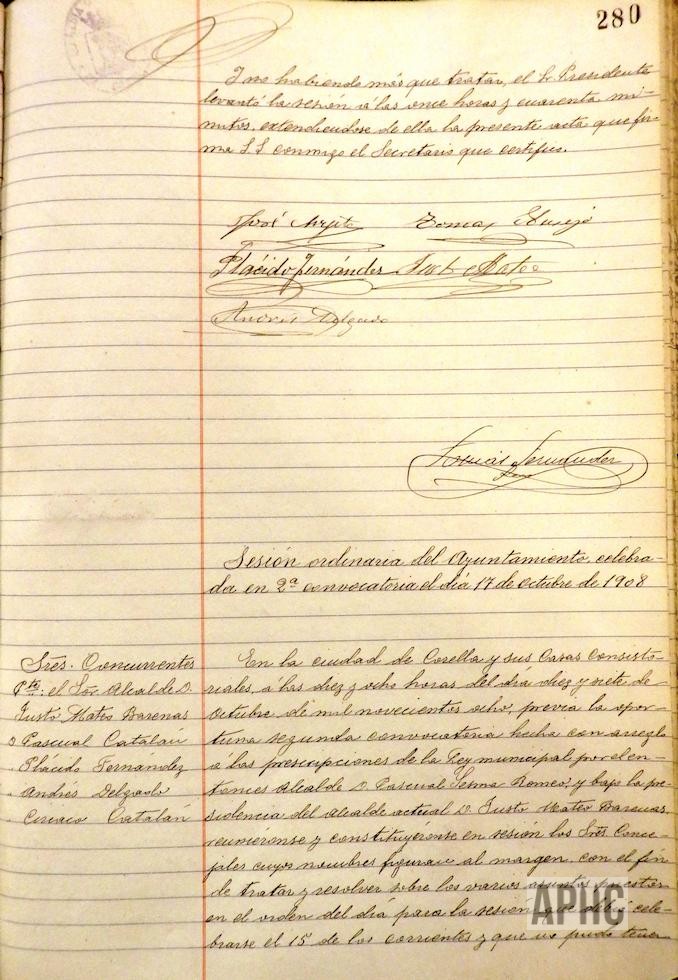 280
Y no habiendo más que tratar, el Sr. Presidente
levantó la sesión a las once horas y cuarenta mi-
nutos, extendiendose de ella la presente acta que fir-
ma S S conmigo el Secretario que certifico.
José
Plácido Fernández
Andrés Delgado
Sesión ordinaria del Ayuntamiento, celebra-
da en 2ª convocatoria el día 17 de octubre de 1908
Sres. Concurrentes
Pte: el Sor Alcalde D.
Justo Mateo Barenas
D Pascual Catalán
" Plácido Fernandez
" Andrés Delgado
" Ciriaco Catalán
En la ciudad de Corella y sus Casas Consisto-
riales, a las diez y ocho horas del día diez y siete de
Octubre de mil novecientos ocho, previa la opor-
tuna segunda convocatoria hecha con arreglo
a las prescripciones de la Ley municipal por el en-
tonces Alcalde D. Pascual Sesma Romeo, y bajo la pre-
sidencia del Alcalde actual D. Justo Mateo Barenas,
reuniéronse y constituyeronse en sesión los Sres. Conce-
jales cuyos nombres figuran al margen, con el fin
de tratar y resolver sobre los varios asuntos puestos
en el orden del día para la sesion que debió cele-
brarse el 15 de los corrientes y que no pudo tener
APHC